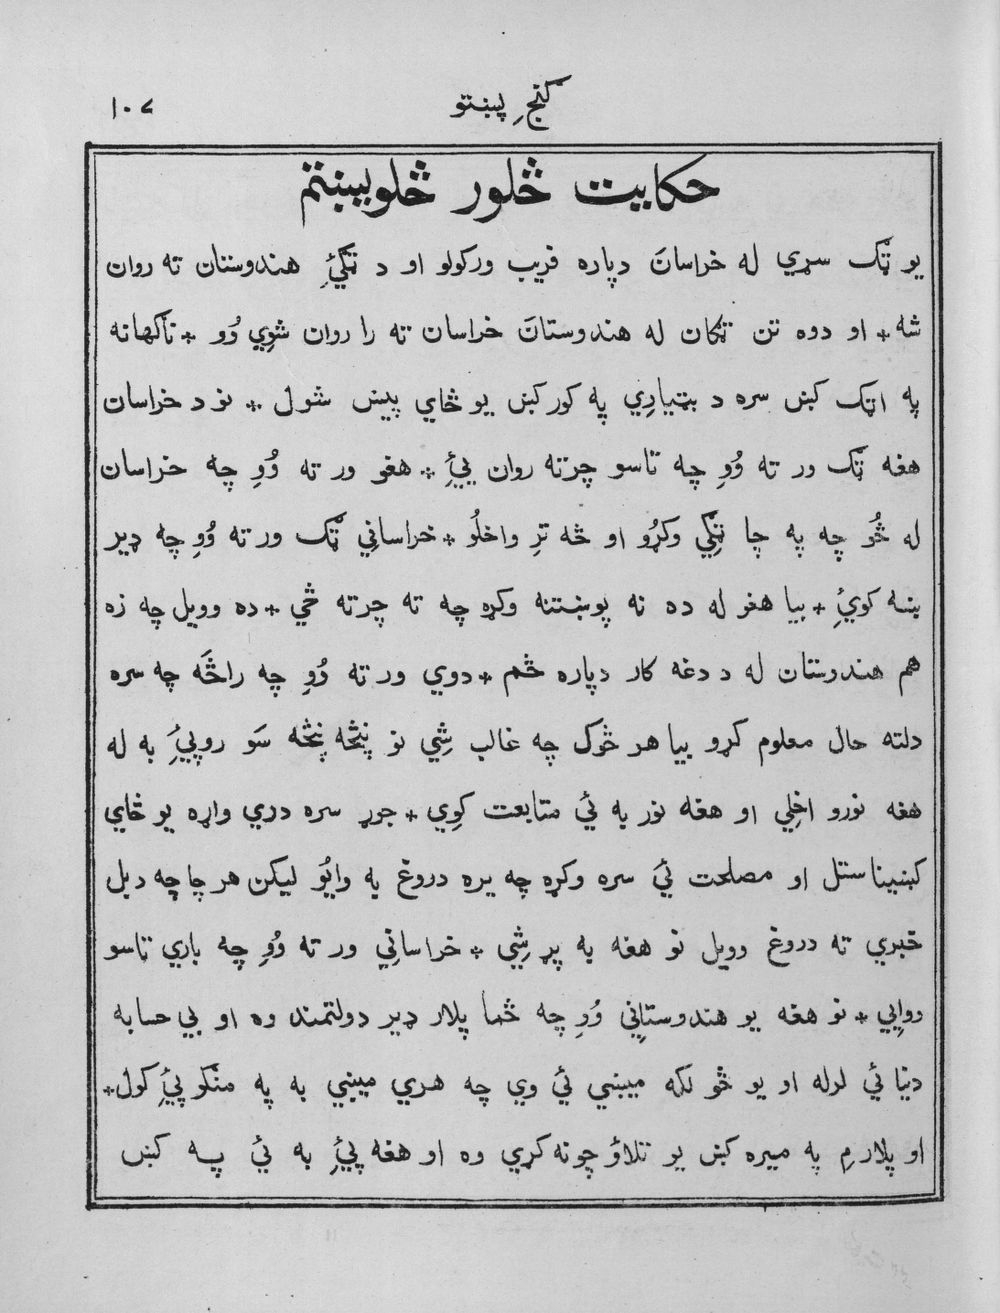 گنجِ پښتو
۱۰۷
حکایت څلور څلویښتم
یو ټګ سړي له خراسانَ دپاره فریب ورکولو او د ټګئِ هندوستان ته روان
شه + او دوه تن ټګان له هندوستانَ خراسان ته را روان شوِي وُو + ناګهانه
په اټک کښ سره د بټیارِي په کور کښ یو ځاي پیښ شول + نو د خراسان
هغه ټګ ور ته وُوِ چه تاسو چرته روان ییُٔ + هغو ور ته وُوِ چه خراسان
له ځُو چه په چا ټګِي وکړُو او څه ترِ واخلُو + خراسانِي ټګ ور ته وُوِ چه ډیر
ښه کوئِ + بیا هغو له ده نه پوښتنه وکړه چه ته چرته ځي + ده وویل چه زه
هم هندوستان له د دغه کار دپاره ځم + دوي ور ته وُوِ چه راځَه چه سره
دلته حال معلوم کړو بیا هر څوک چه غالب شِي نو پنځه پنځه سَو روپئِ به له
هغه نورو اخلِي او هغه نور به ئي متابعت کوِي + جوړ سره دري واړه یو ځاي
کښیناستل او مصلحت ئي سره وکړه چه یره دروغ به وایُو لیکن هر چا چه د بل
خبري ته دروغ وویل نو هغه به پړ شِي + خراسانِي ور ته وُوِ چه باري تاسو
روایِي + نو هغه یو هندوستانِي وُوِ چه څما پلار ډیر دولتمند وه او بي حسابه
دنیا ئي لرله او یو څو لکه میښي ئي وي چه هري میښي به په منګو پئِ کول +
او پلار مِ په میره کښ یو تلاؤ چونه کړي وه او هغه پئِ به ئي په کښ